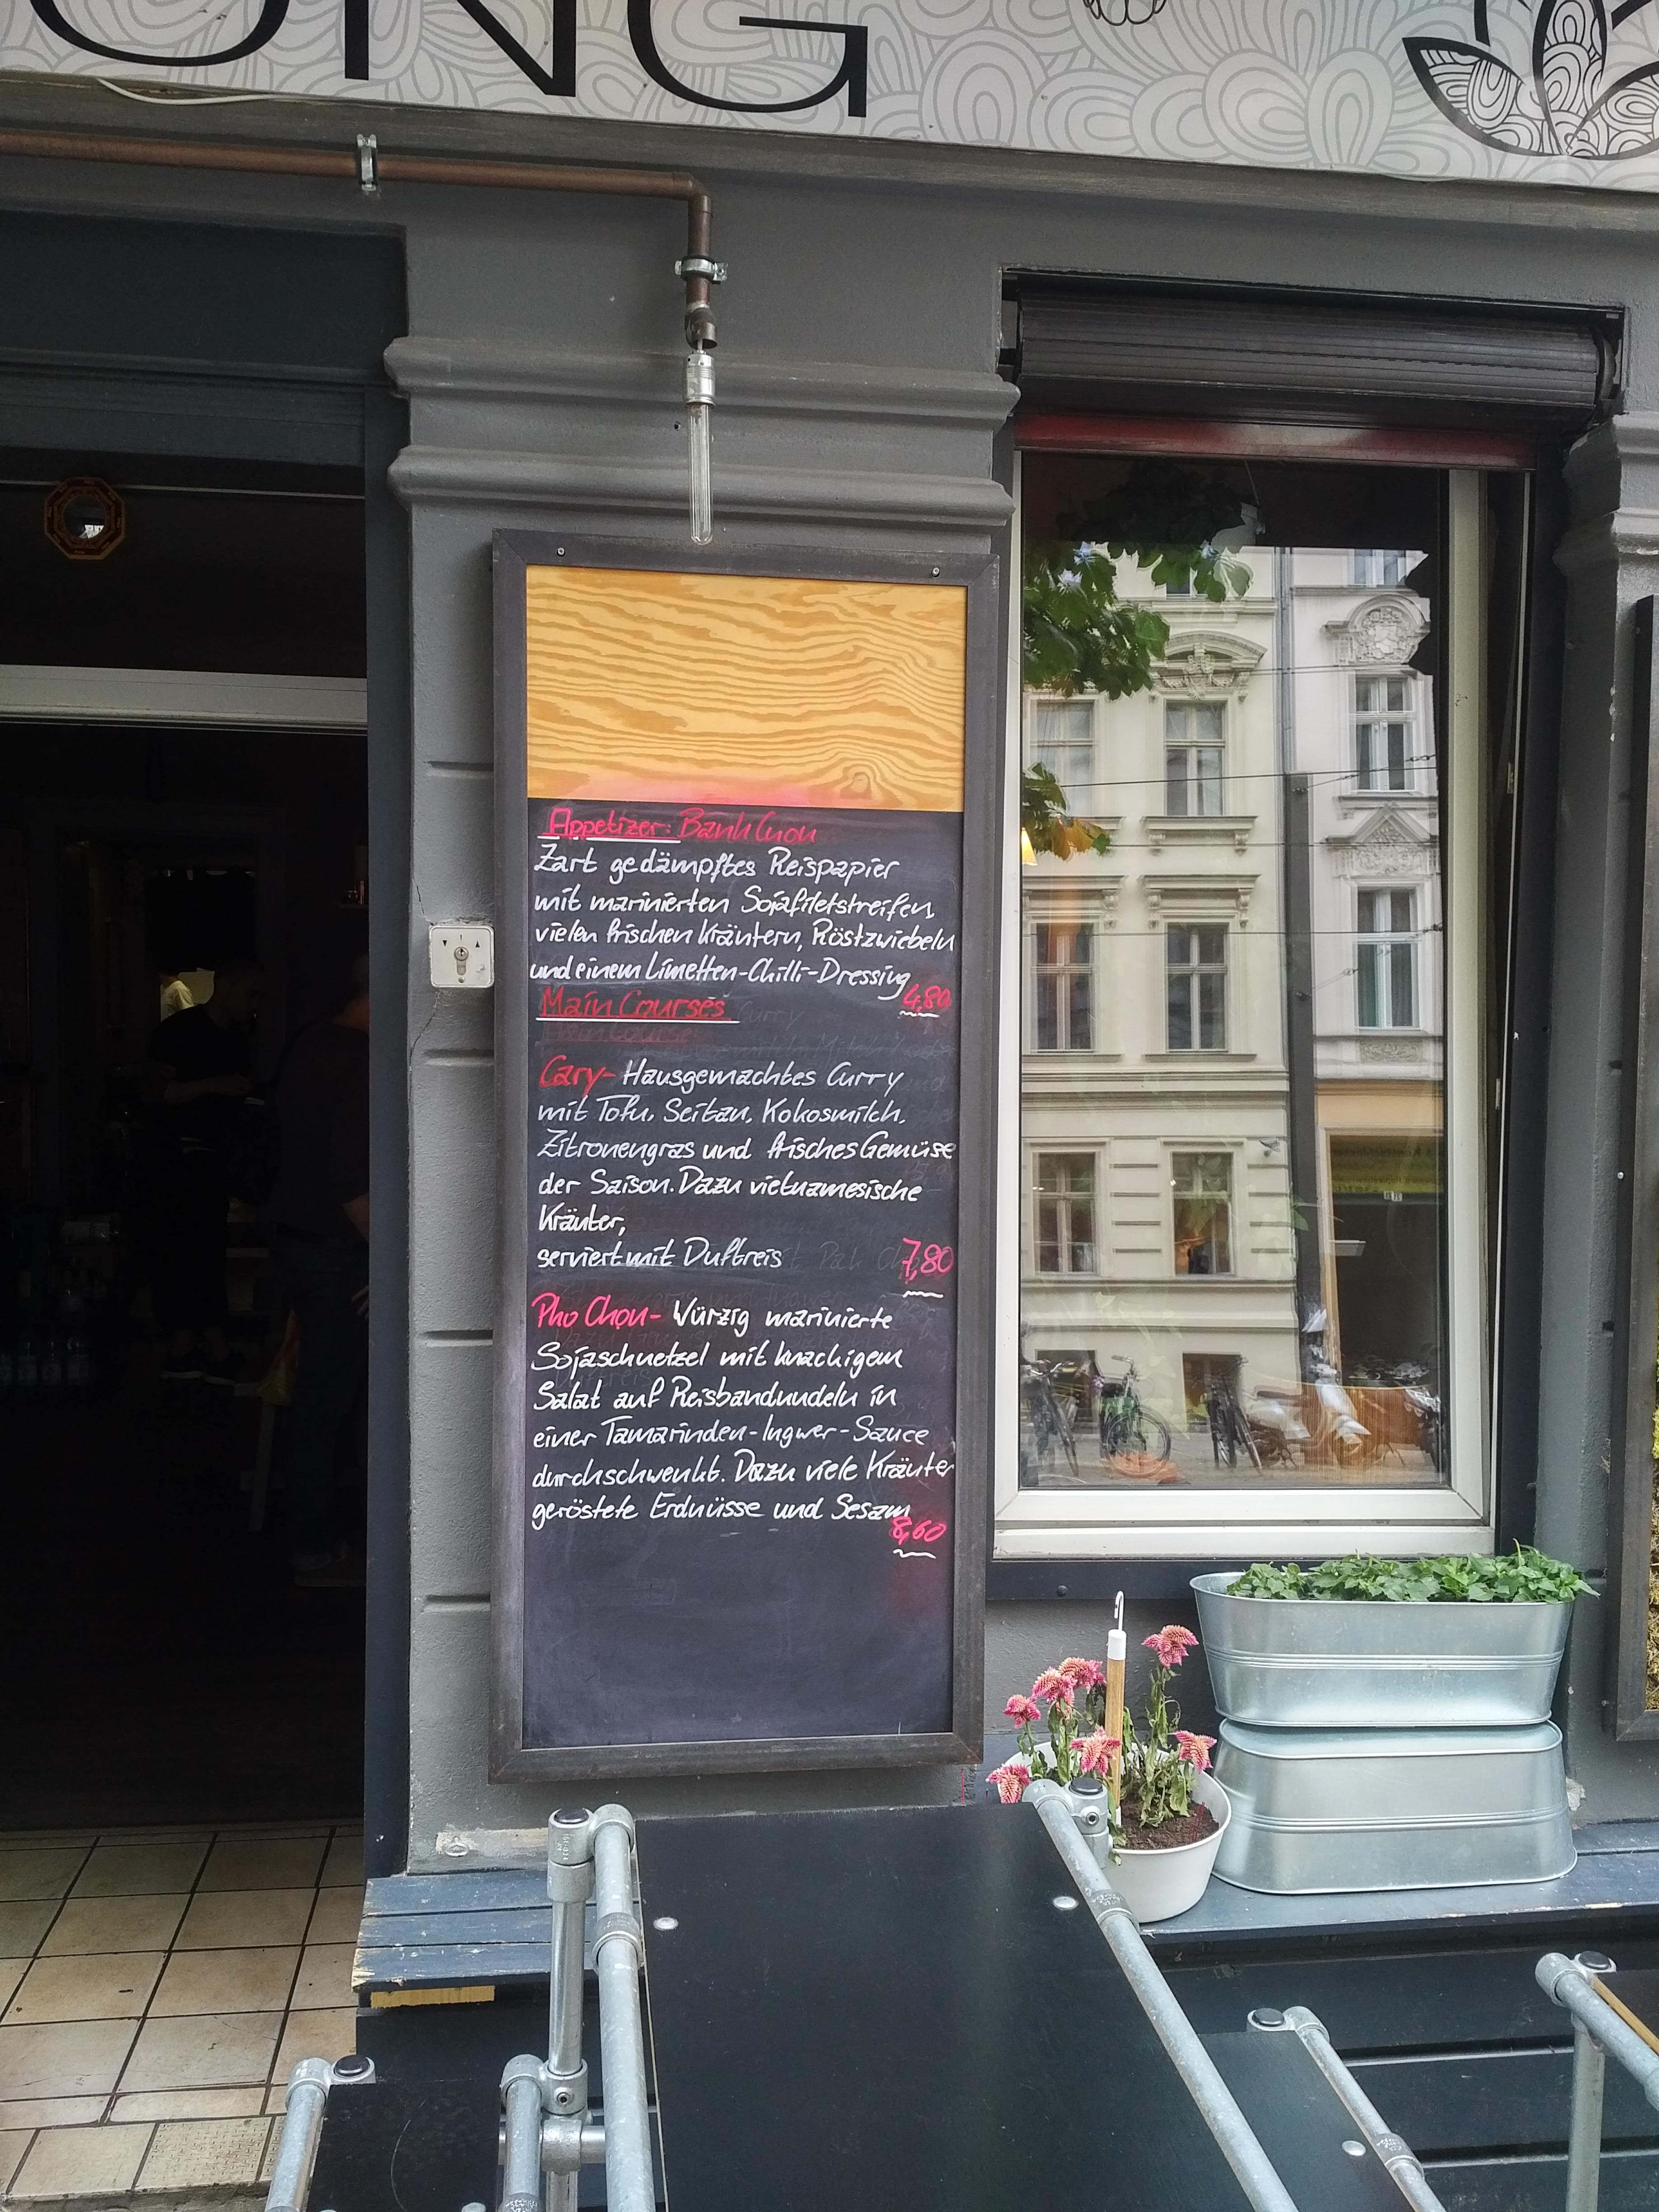 UNG
Appetizer: Banh Cuon
Zart gedämpftes Reispapier
mit marinierten Sojafiletstreifen,
vielen frischen Kräutern, Röstzwiebeln
und einem Limetten-Chilli-Dressing
4,80
Main Courses
Cary- Hausgemachtes Curry
mit Tofu, Seitan, Kokosmilch,
Zitronengras und frisches Gemüse
der Saison. Dazu vietnamesische
Kräuter,
serviert mit Duftreis 7,80
Pho Chon- Würzig marinierte
Sojaschnetzel mit knackigem
Salat auf Reisbandnudeln in
einer Tamarinden-Ingwer-Sauce
durchschwenkt. Dazu viele Kräuter
geröstete Erdnüsse und Sesam
8,60